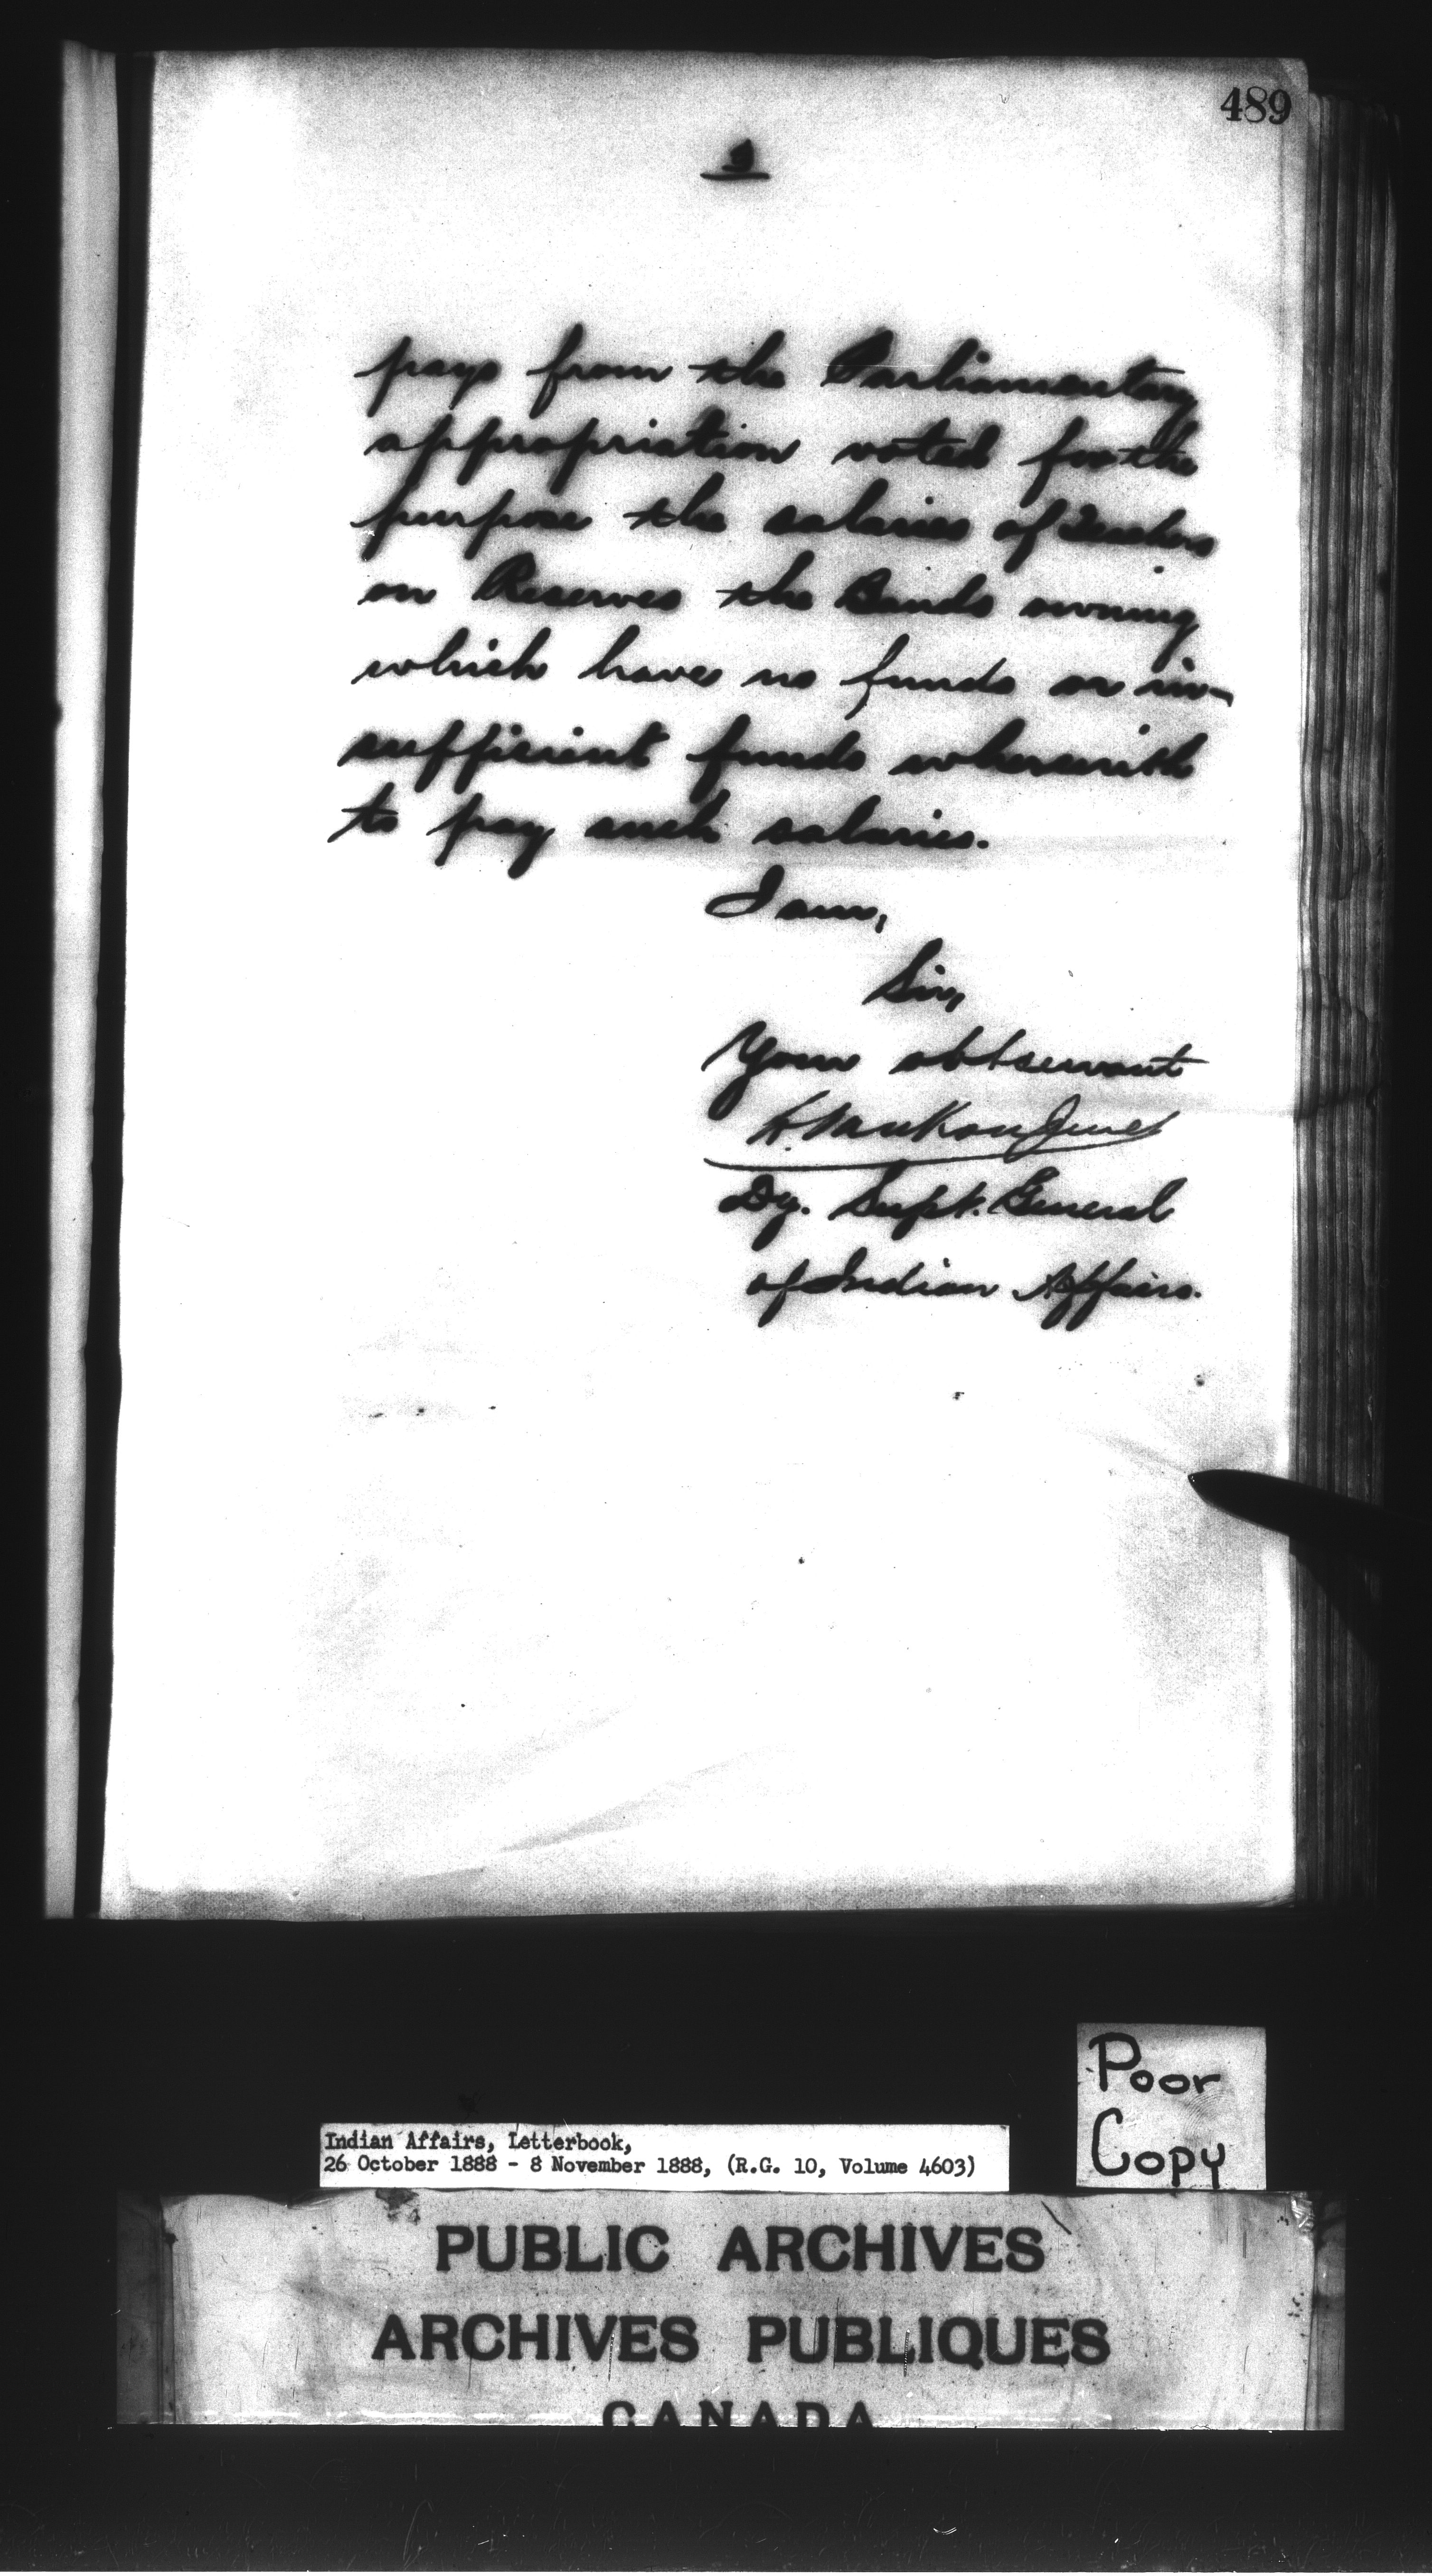 489
pays from the Parliamentary
appropriation voted for the
purpose the salaries of Teachers
on Reserves the Bands owning
which have no funds or in-
sufficient funds wherewith
to pay such salaries.
I am,
Sir,
Your obt servant
L. VanKoughnet
Dy. Supt. General
of Indian Affairs.
Poor
Copy
Indian Affairs, Letterbook,
26 October 1888 - 8 November 1888, (R.G. 10, Volume 4603)
PUBLIC ARCHIVES
ARCHIVES PUBLIQUES
CANADA